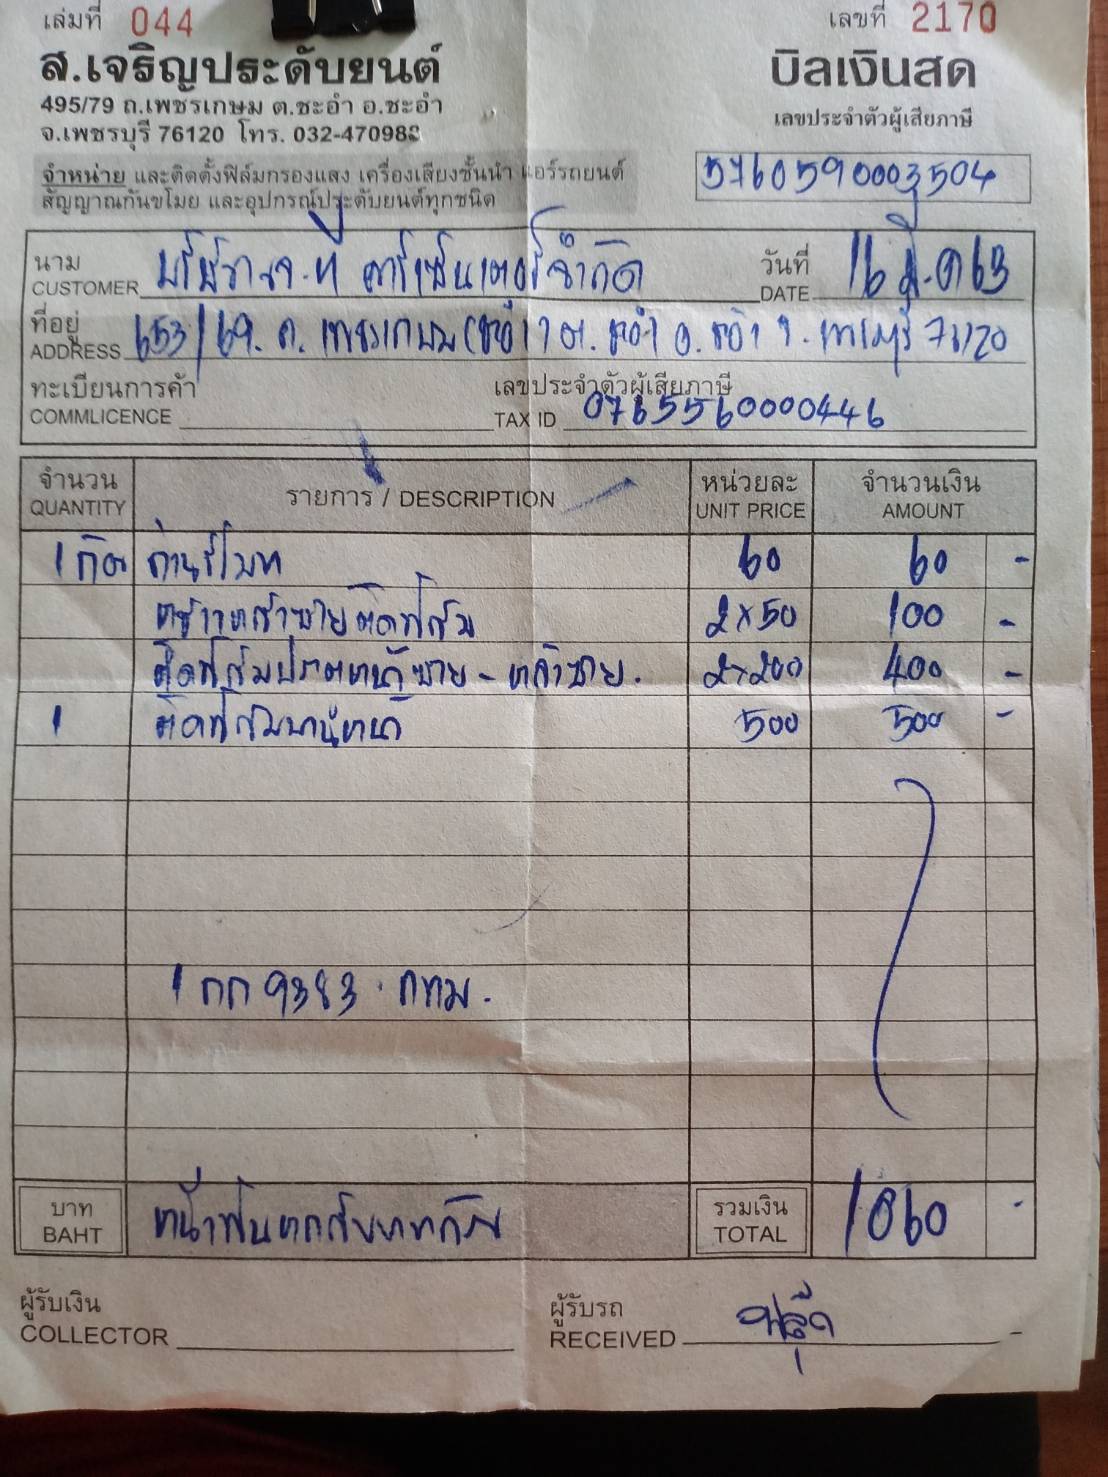 เล่มที่ 044 เลขที่ 2170
ส.เจริญประดับยนต์ บิลเงินสด
495/79 ถ.เพชรเกษม ต.ชะอำ อ.ชะอำ
จ.เพชรบุรี 76120 โทร. 032-470982
เลขประจำตัวผู้เสียภาษี
5760590003504
จำหน่าย และติดตั้งฟิล์มกรองแสง เครื่องเสียงชั้นนำ แอร์รถยนต์
สัญญาณกันขโมย และอุปกรณ์ประดับยนต์ทุกชนิด
นาม วันที่
CUSTOMER คาร์เซ็นเตอร์จำกัด DATE 16
ที่อยู่
ADDRESS 653/69. ถ. เพชรเกษม ต. ชะอำ อ. ชะอำ จ. เพชรบุรี 76120
ทะเบียนการค้า เลขประจำตัวผู้เสียภาษี
COMMLICENCE TAX ID 0765560000446
จำนวน รายการ / DESCRIPTION หน่วยละ จำนวนเงิน
QUANTITY UNIT PRICE AMOUNT
1 ถ่านรีโมท 60 60 -
ติดฟิล์ม 2x50 100 -
ติดฟิล์มประตูหน้าซ้าย - หลังซ้าย. 2x200 400 -
1 ติดฟิล์มบานหน้า 500 500 -
1 กก 9383 . กทม.
บาท รวมเงิน
BAHT หนึ่งพันหกสิบบาทถ้วน TOTAL 1060 -
ผู้รับเงิน ผู้รับรถ
COLLECTOR RECEIVED